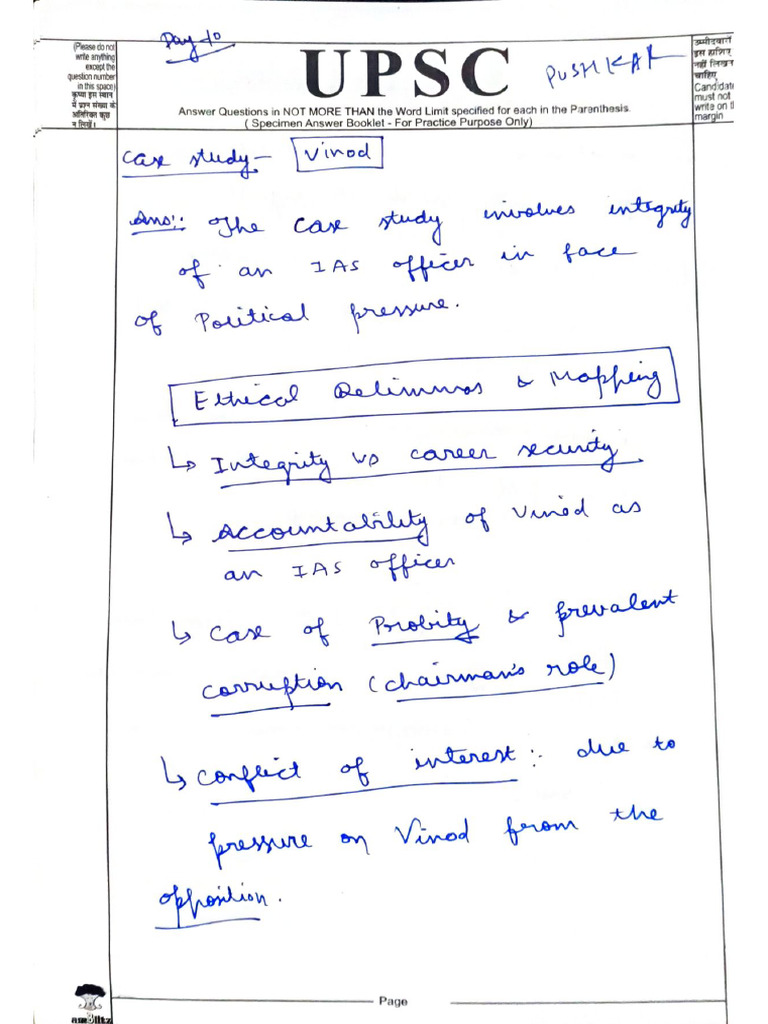 Day 10
(Please do not
write anything
except the
question number
in this space)
कृपया इस स्थान
में प्रश्न संख्या के
अतिरिक्त कुछ
न लिखें।
UPSC
PUSHKAR
उम्मीदवारों
इस हाशिए
नहीं लिखन
चाहिए
Candidate
must not
write on t
margin
Answer Questions in NOT MORE THAN the Word Limit specified for each in the Parenthesis.
( Specimen Answer Booklet - For Practice Purpose Only)
Case study - Vinod
Ans:- The case study involves integrity
of an IAS officer in face
of Political pressure.
Ethical Delimmas & Mapping
↳ Integrity vs career security
↳ Accountability of Vinod as
an IAS officer
↳ case of Probity & prevalent
corruption (chairman's role)
↳ conflict of interest :- due to
pressure on Vinod from the
opposition.
Page